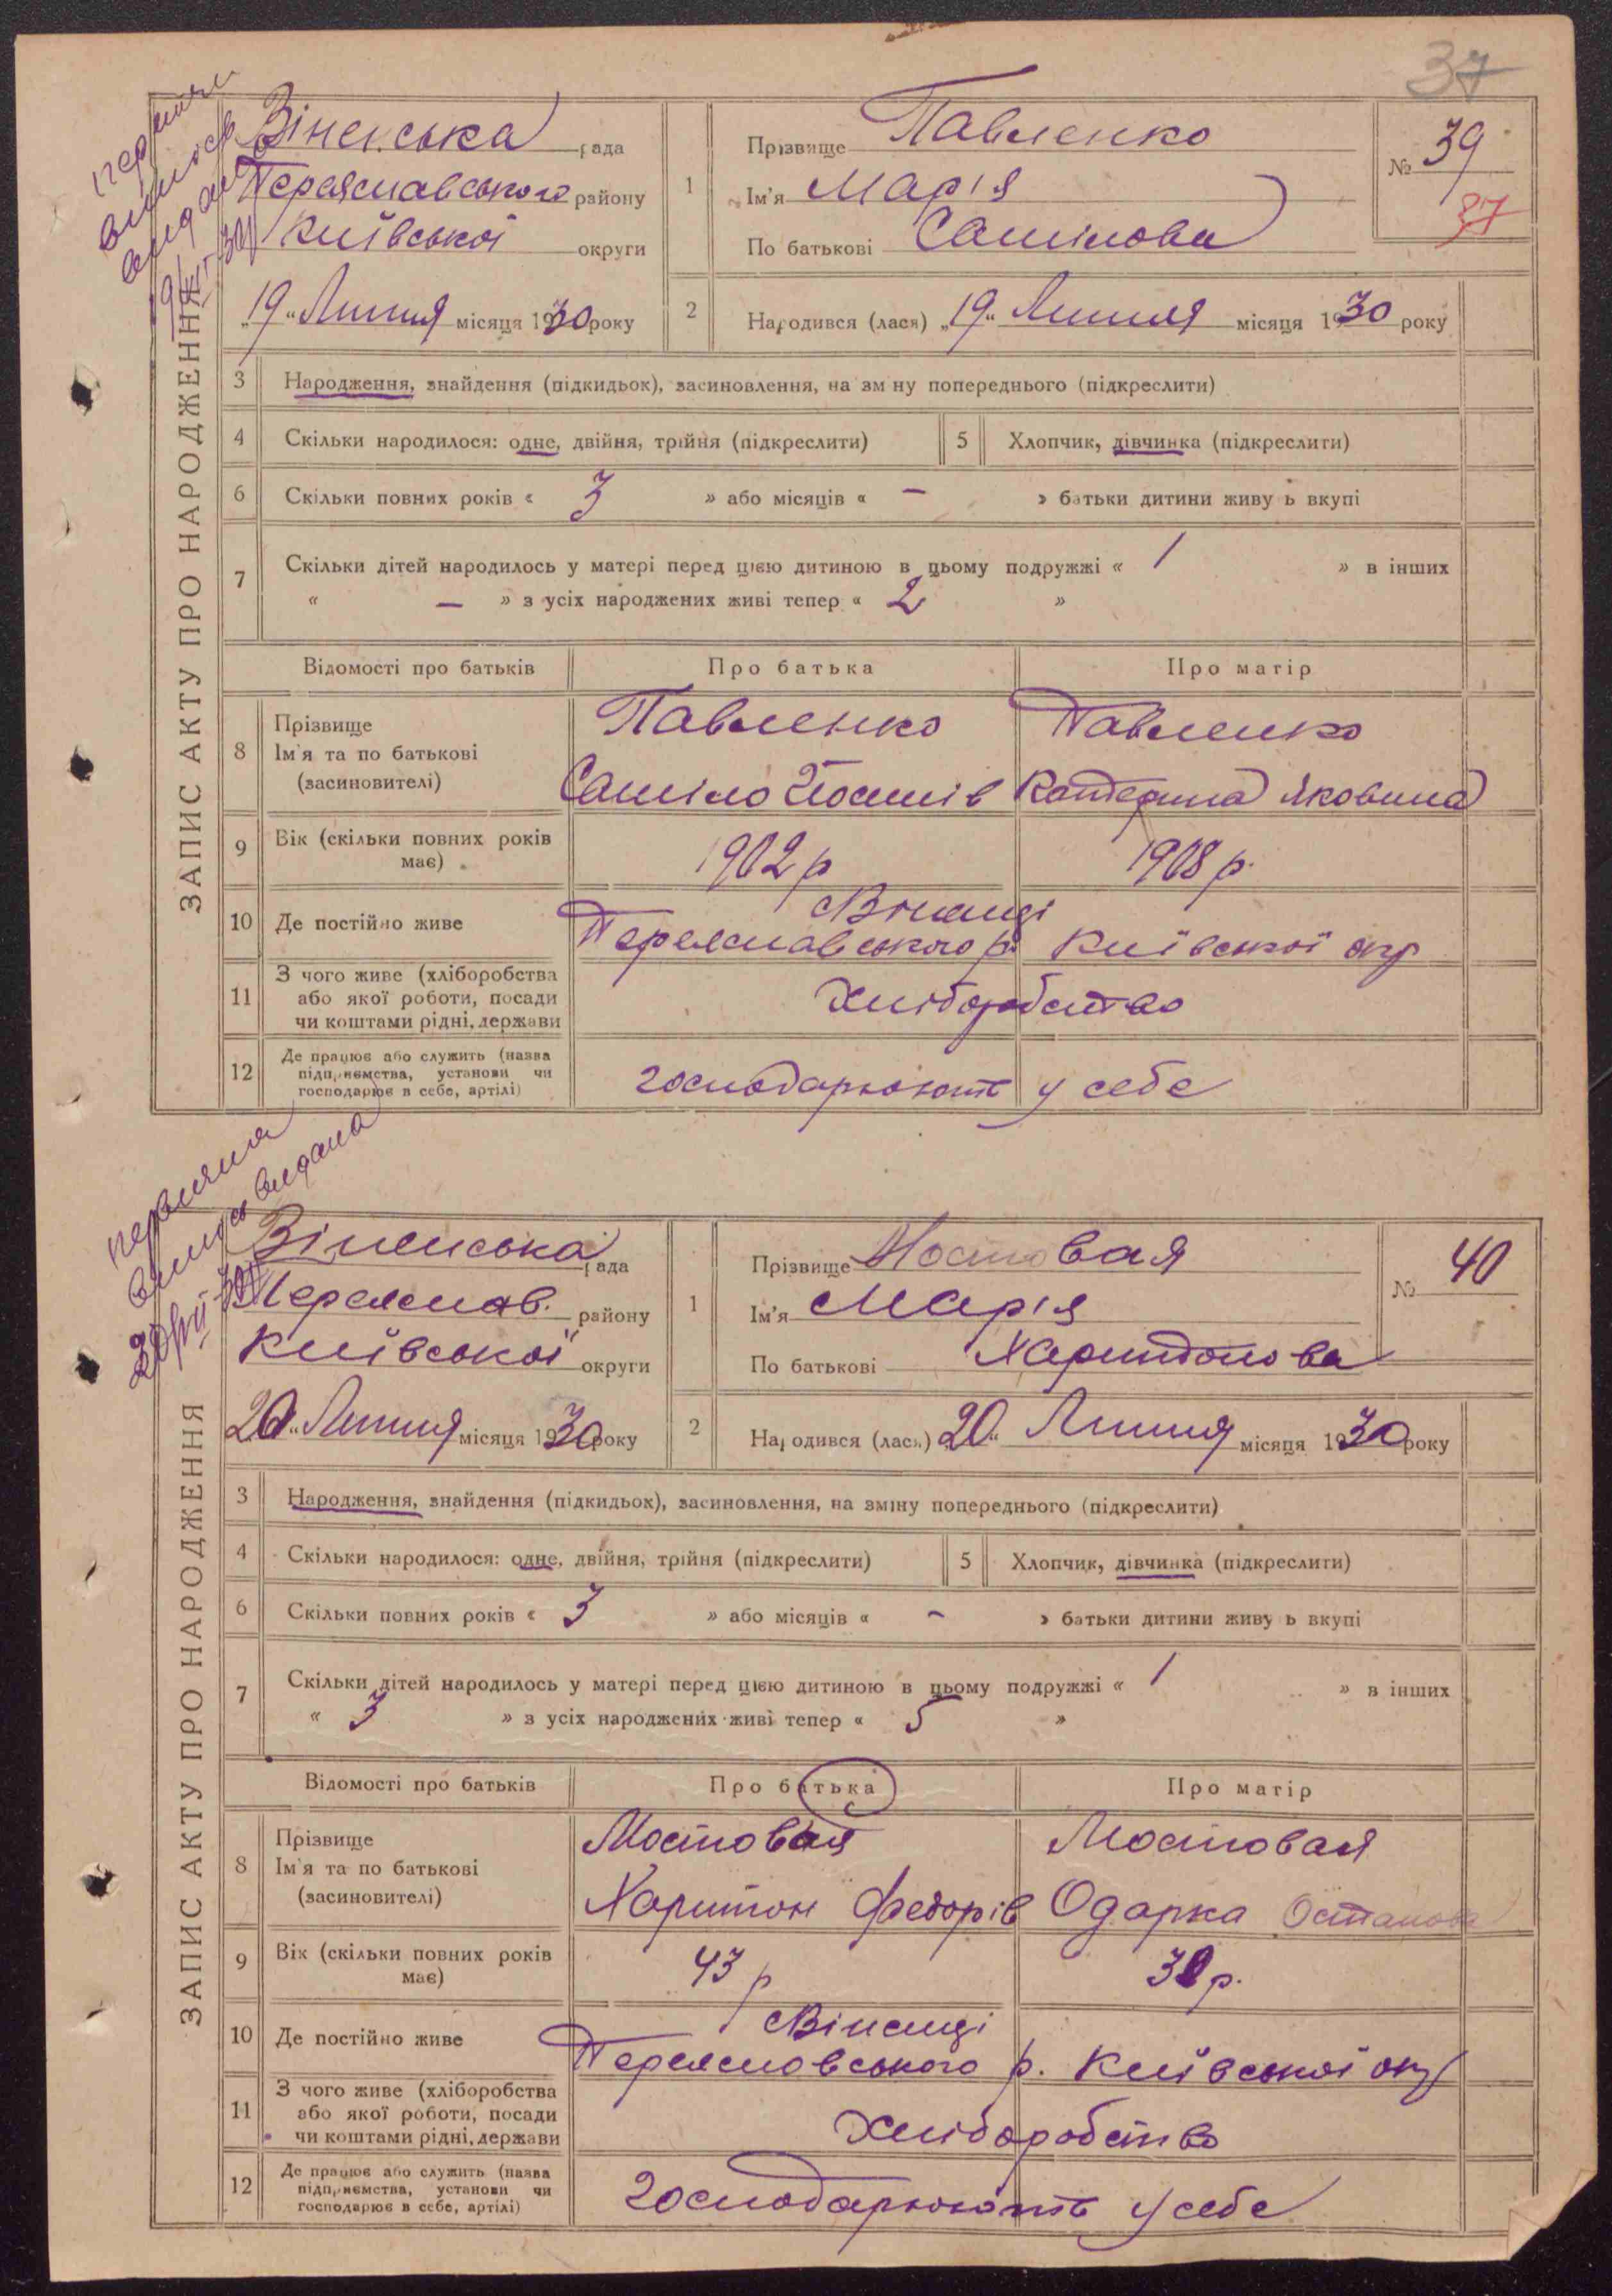 37
первична
виписъ
видана
19/VII 30р
ЗАПИС АКТУ ПРО НАРОДЖЕННЯ
Віненська рада
Переяславського району
Київської округи
„19“ Липня місяця 1930 року
1
Прізвище Павленко
Ім'я Марія
По батькові Самілова
№ 39
37
2 Народився (лася) „19“ Липня місяця 1930 року
3 Народження, знайдення (підкидьок), засиновлення, на зміну попереднього (підкреслити)
4 Скільки народилося: одне, двійня, трійня (підкреслити) 5 Хлопчик, дівчинка (підкреслити)
6 Скільки повних років « 3 » або місяців « – » батьки дитини живуть вкупі
7 Скільки дітей народилось у матері перед цією дитиною в цьому подружжі « 1 » в інших
« – » з усіх народжених живі тепер « 2 »
Відомості про батьків Про батька Про матір
8 Прізвище
Ім'я та по батькові
(засиновителі)
Павленко Павленко
Саміло Йосипів Катерина Яковина
9 Вік (скільки повних років
має)
1902 р 1908 р.
10 Де постійно живе
с Вінинці
Переяславського р. Київської окр
11 З чого живе (хліборобства
або якої роботи, посади
чи коштами рідні, держави
Хліборобство
12 Де працює або служить (назва
підприємства, установи чи
господарює в себе, артілі)
господарюють у себе
первична
виписъ видана
20/VII 30р
ЗАПИС АКТУ ПРО НАРОДЖЕННЯ
Віненська рада
Переяслав. району
Київської округи
„20“ Липня місяця 1930 року
1
Прізвище Мостовая
Ім'я Марія
По батькові Харитонова
№ 40
2 Народився (лася) „20“ Липня місяця 1930 року
3 Народження, знайдення (підкидьох), засиновлення, на зміну попереднього (підкреслити)
4 Скільки народилося: одне, двійня, трійня (підкреслити) 5 Хлопчик, дівчинка (підкреслити)
6 Скільки повних років « 3 » або місяців « – » батьки дитини живуть вкупі
7 Скільки дітей народилось у матері перед цією дитиною в цьому подружжі « 1 » в інших
« 3 » з усіх народжених живі тепер « 5 »
Відомості про батьків Про батька Про матір
8 Прізвище
Ім'я та по батькові
(засиновителі)
Мостовая Мостовая
Харитон Федорів Одарка Остапова
9 Вік (скільки повних років
має)
43 р 38 р.
10 Де постійно живе
с Вінинці
Переясловського р. Київської окр
11 З чого живе (хліборобства
або якої роботи, посади
чи коштами рідні, держави
Хліборобство
12 Де працює або служить (назва
підприємства, установи чи
господарює в себе, артілі)
господарюють у себе